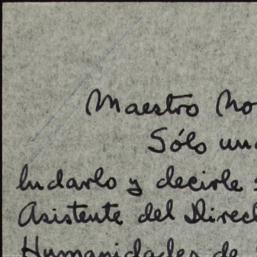 Maestro No
Sólo una
ludarlo y decirle s
Asistente del Direc
Humanidades de